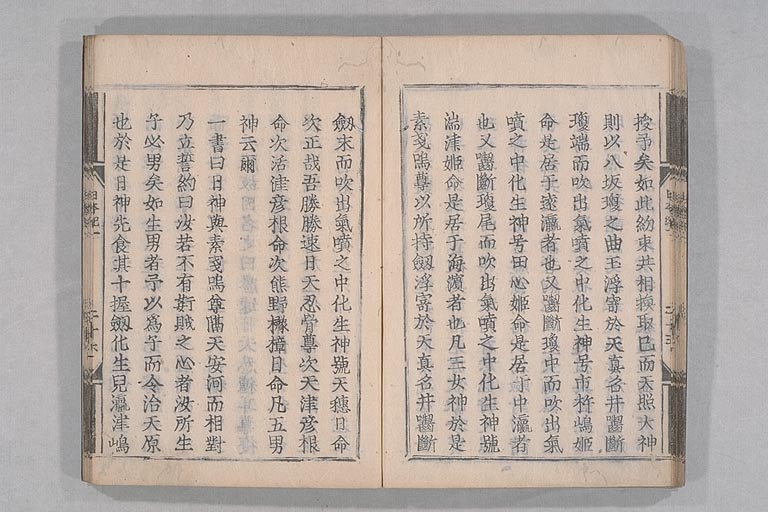 授予矣如此約束共相換取已而天照大神
則以八坂瓊之曲玉浮寄於天真名井囓斷
瓊端而吹出氣噴之中化生神号市杵嶋姬
命是居于遠瀛者也又囓斷瓊中而吹出氣
噴之中化生神号田心姬命是居于中瀛者
也又囓斷瓊尾而吹出氣噴之中化生神號
湍津姬命是居于海濱者也凡三女神於是
素戔嗚尊以所持劔浮寄於天真名井囓斷
劔末而吹出氣噴之中化生神號天穗日命
次正哉吾勝勝速日天忍骨尊次天津彦根
命次活津彦根命次熊野櫲樟日命凡五男
神云爾
一書曰日神與素戔嗚尊隔天安河而相對
乃立誓約曰汝若不有姧賊之心者汝所生
子必男矣如生男者予以爲子而令治天原
也於是日神先食其十握劔化生兒瀛津嶋